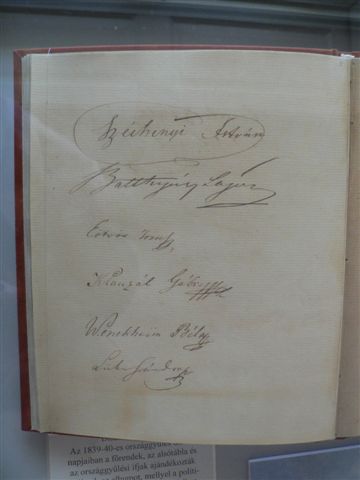 Széchenyi István
Batthyány Lajos
Eötvös József
Klauzál Gábor
Wenckheim Béla
Az 1839-40-es országgyűlés
napjaiban a főrendek, az alsótábla és
az országgyűlési ifjak ajándékozták